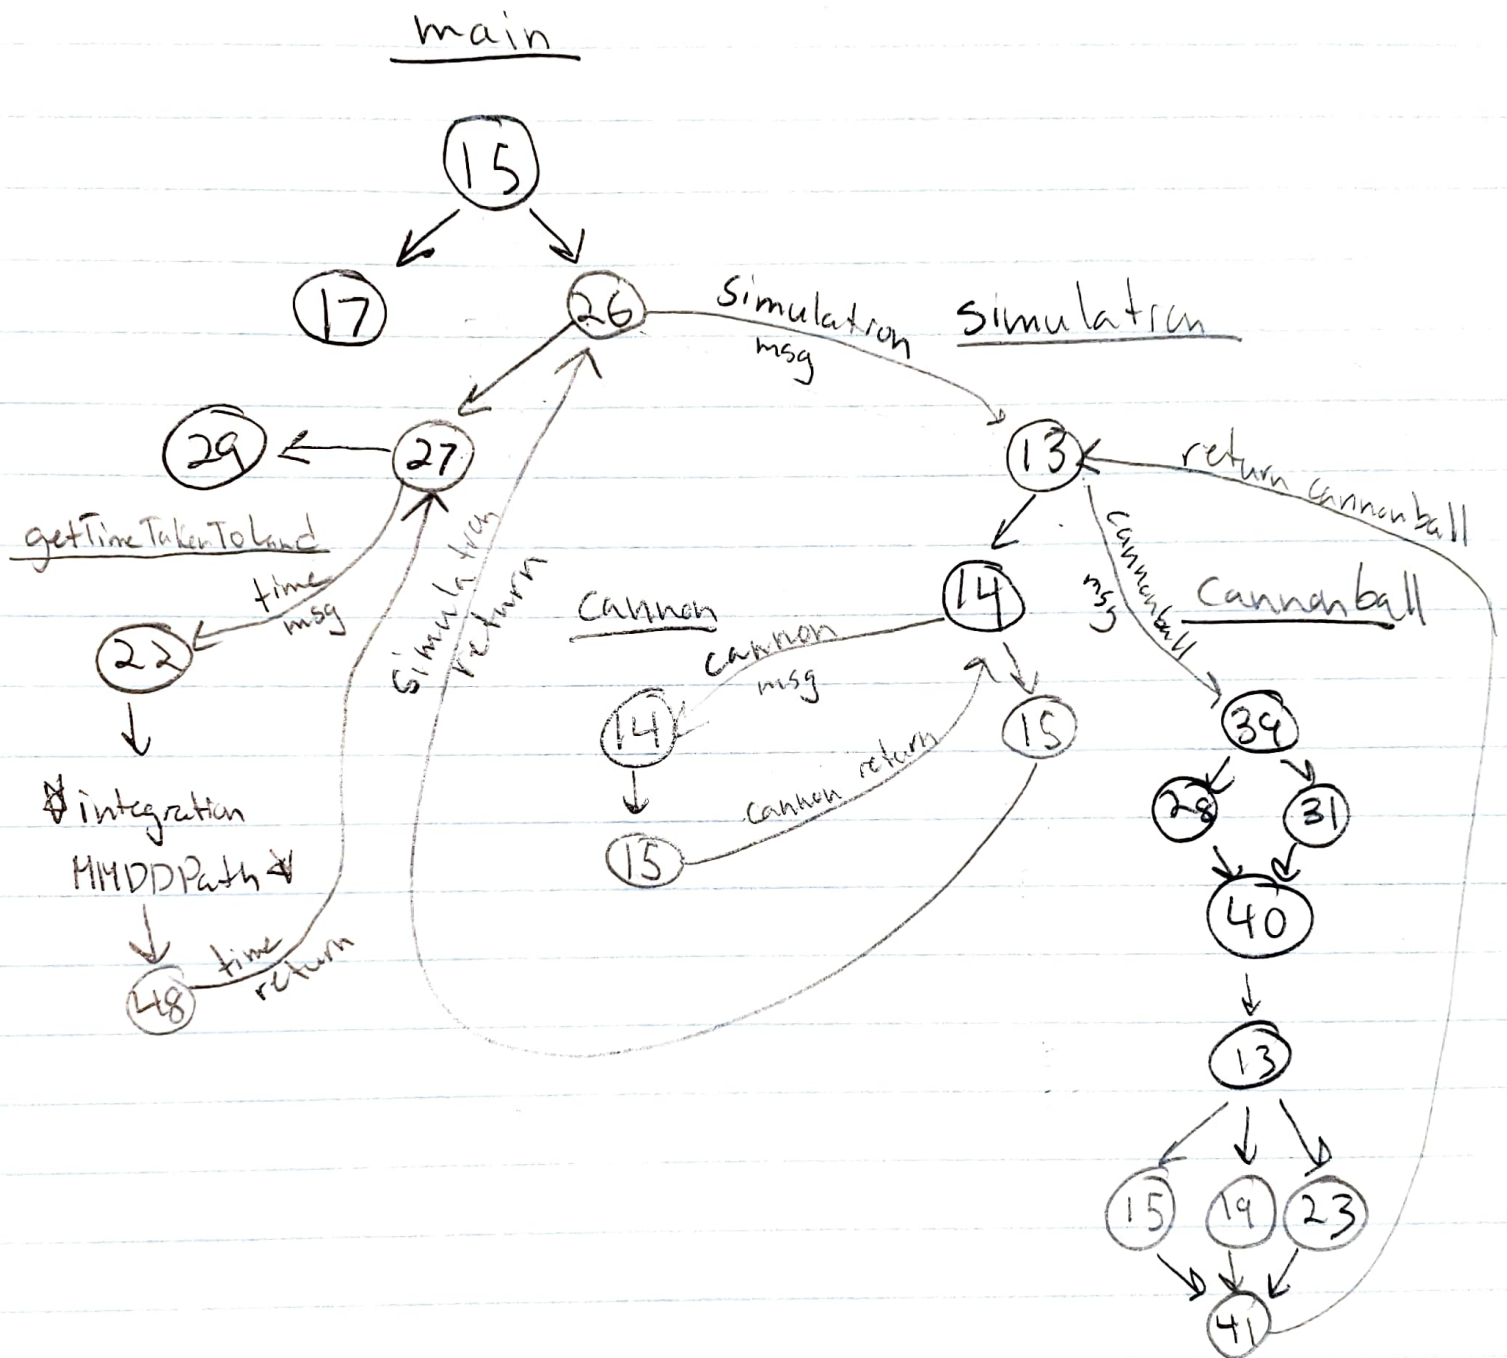 main
15
17
26
simulation
msg
simulation
29
27
13
return cannonball
getTimeTakenToLand
time
msg
simulation
return
cannon
cannon
msg
14
cannonball
msg
cannonball
22
14
15
39
integration
MMDDPath
15
cannon return
28
31
40
48
time
return
13
15
19
23
41